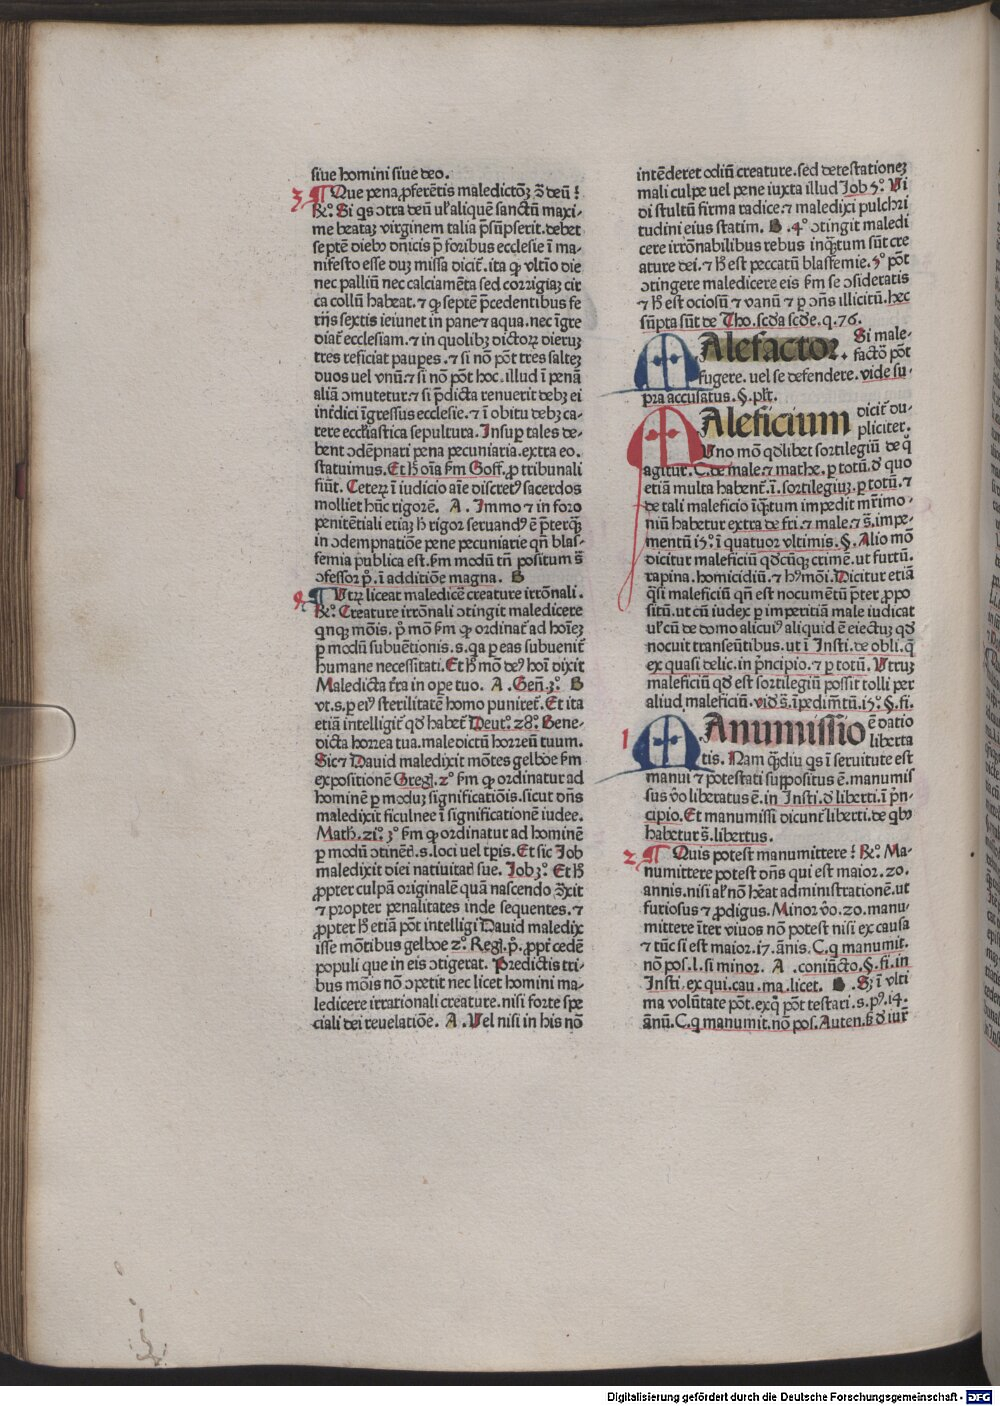 siue homini siue deo.
3 ¶ Que pena ꝓferētis maledictōꝫ ↄ̄ deū ?
℞. Si qs ↄtra deū uł aliquē sanctū maxi-
me beataꝫ virginem talia p̄sūpserit. debet
septē diebꝰ dn̄icis p̄ foribus ecclesie ī ma-
nifesto esse duꝫ missa dicit᷑. ita ꝙ vltīo die
nec palliū nec calciamēta sed corrigiaꝫ cir
ca collū habeat. ⁊ ꝙ septē p̄cedentibus fe
rijs sextis ieiunet in pane ⁊ aqua. nec īgre
diat᷑ ecclesiam. ⁊ in quolibꝫ dictoꝝ dieruꝫ
tres reficiat paupes. ⁊ si nō pōt tres salteꝫ
duos uel vnū. ⁊ si nō pōt hoc. illud ī penā
aliā ↄmutetur. ⁊ si p̄dicta renuerit debꝫ ei
int̄dici īgressus ecclesie. ⁊ ī obitu debꝫ ca-
rere eccl̄iastica sepultura. Insuꝑ tales de-
bent ↄdēpnari pena pecuniaria. extra eo.
statuimus. Et hͦ oīa ẜm Goff. ꝓ tribunali
fiūt. Ceteꝝ ī iudicio aīe discretꝰ sacerdos
molliet hūc rigorē. A . Immo ⁊ in foro
penitētiali etiaꝫ hͨ rigor seruandꝰ ē p̄terqꝫ
in ↄdempnatiōe pene pecuniarie qn̄ blas-
femia publica est. ẜm modū tn̄ positum s̄
ↄfessor pͦ. ī additiōe magna. B
4 ¶ Utꝝ liceat maledicē creature irrōnali.
℞. Creature irrōnali ↄtingit maledicere
qnqꝫ mōis. pͦ mō ẜm ꝙ ordinat᷑ ad hoīeꝫ
ꝑ modū subuētionis. s. qa ꝑ eas subuenit᷑
humane necessitati. Et hͦ mō deꝰ hoī dixit
Maledicta t̄ra in opere tuo. A . Geñ. 3ͦ. B
vt. s. ꝑ eiꝰ sterilitatē homo puniret᷑. Et ita
etiā intelligit᷑ qd habet᷑ Deut᷑. 28ͦ. Bene-
dicta horrea tua. maledictū horreū tuum.
Sic ⁊ Dauid maledixit mōtes gelboe ẜm
expositionē Greg̃. 2ͦ ẜm ꝙ ordinatur ad
hominē ꝑ moduꝫ significatiōis. sicut dn̄s
maledixit ficulnee ī significationē iudee.
Math̄. 21ͦ. 3ͦ ẜm ꝙ ordinatur ad hominē
ꝑ modū ↄtinētis. s. loci uel tꝑis. Et sic Job
maledixit diei natiuitatis sue. Job 3ͦ. Et hͦ
ꝓpter culpā originalē quā nascendo ↄ̄xit
⁊ propter penalitates inde sequentes. ⁊
ꝓpter hͦ etiā pōt intelligi Dauid maledix
isse mōtibus gelboe 2ͦ. Reg̃. pͦ. ꝓpt᷑ cedē
populi que in eis ↄtigerat. Predictis tri-
bus mōis nō ↄpetit nec licet homini ma-
ledicere irrationali creature. nisi forte spe
ciali dei reuelatiōe. A . Uel nisi in his nō
intēderet odiū creature. sed detestationeꝫ
mali culpe uel pene iuxta illud Job 5ͦ. Ui
di stultū firma radice. ⁊ maledixi pulchri
tudini eius statim. B . 4ͦ ↄtingit maledi
cere irrōnabilibus rebus inqꝫtum sūt cre
ature dei. ⁊ hͦ est peccatū blasfemie. 5ͦ pōt
ↄtingere maledicere eis ẜm se ↄsideratis
⁊ hͦ est ociosū ⁊ vanū ⁊ ꝑ ↄn̄s illicitū. hec
sūpta sūt de Tho. scd̄a scd̄e. q. 76.
MAlefactor. Si male-
factoꝝ pōt
fugere. uel se defendere. vide su-
pra accusatus. §. pl̄t.
MAleficium dicit᷑ du-
pliciter.
Uno mō qd̄libet sortilegiū de q̊
agitur. C. de male. ⁊ mathe. ꝑ totū. d̄ quo
etiā multa habent᷑. ī. sortilegiuꝫ. ꝑ totū. ⁊
de tali maleficio īqꝫtum impedit mr̄imo-
niū habetur extra de fri. ⁊ male. ⁊ s̄. impe-
mentū 15ͦ. ī quatuor vltimis. §. Alio mō
dicitur maleficiū qd̄cūqꝫ crimē. ut furtū.
rapina. homicidiū. ⁊ hꝰmōi. Dicitur etiā
q̄si maleficiū qn̄ est nocumētū p̄ter ꝓpo
sitū. ut cū iudex ꝑ imperitiā male iudicat
uł cū de domo alicuiꝰ aliquid ē eiectuꝫ qd̄
nocuit transeūtibus. ut ī Insti. de obli. q̄
ex quasi delic. in p̄ncipio. ⁊ ꝑ totū. Utruꝫ
maleficiū qd̄ est sortilegiū possit tolli per
aliud maleficiū. vid̄ s̄. īpedim̄tū. 15ͦ. §. fi.
1 MAnumissio ē datio
liberta
tis. Nam qꝫdiu qs ī seruitute est
manui ⁊ potestati suppositus ē. manumis
sus v̊o liberatus ē. in Insti. d̄ liberti. ī p̄n-
cipio. Et manumissi dicunt᷑ liberti. de qbꝰ
habetur s̄. libertus.
2 ¶ Quis potest manumittere ? ℞. Ma-
numittere potest dn̄s qui est maior. 20.
annis. nisi al̄ nō h̄eat administrationē. ut
furiosus ⁊ ꝓdigus. Minor v̊o. 20. manu-
mittere īter viuos nō potest nisi ex causa
⁊ tūc si est maior. 17. ānis. C. q manumit.
nō pos. l. si minor. A . coniūcto. §. fi. in
Insti. ex qui. cau. ma. licet. B . Sꝫ ī vlti
ma volūtate pōt. ex q̊ pōt testari. s. pꝰ. 14.
ānū. C. q manumit. nō pos. Auten. ẜ d̄ iur᷑
Digitalisierung gefördert durch die Deutsche Forschungsgemeinschaft - DFG